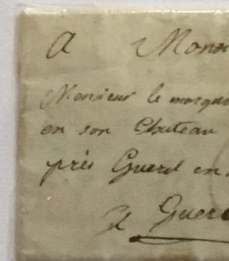 A Mons
Monsieur le marqu
en son Chateau
près Gueret en
A Guere